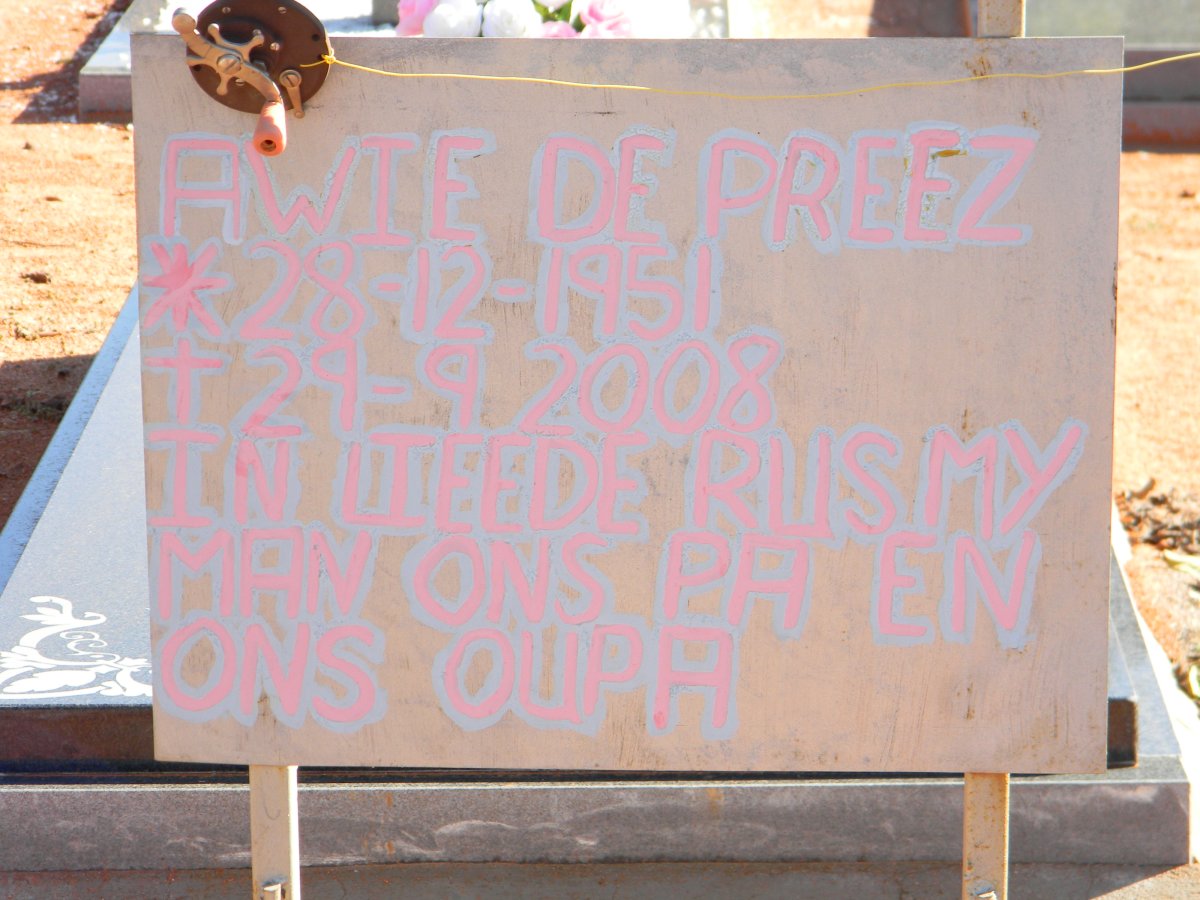 AWIE DE PREEZ
* 28-12-1951
† 29-9 2008
IN LIEEDE RUS MY
MAN ONS PA EN
ONS OUPA